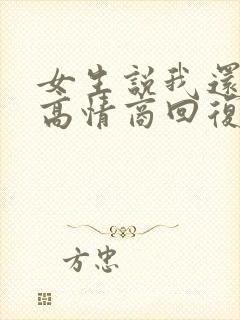 女生說我還
高情商回復
方忠